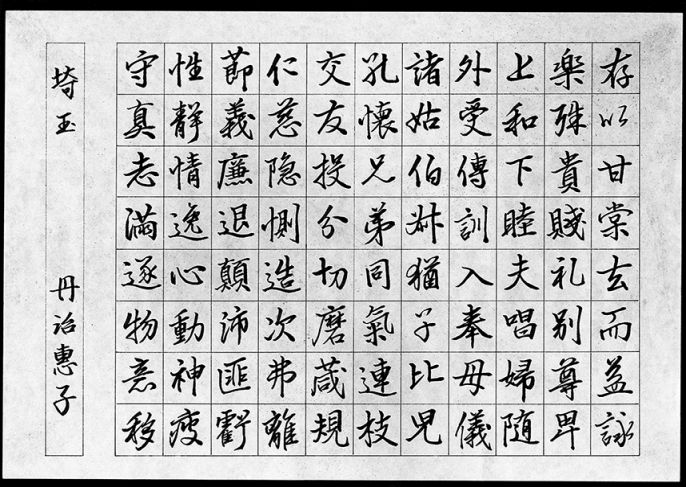 存以甘棠去而益詠
楽殊貴賤礼別尊卑
上和下睦夫唱婦随
外受傳訓入奉母儀
諸姑伯叔猶子比児
孔懐兄弟同氣連枝
交友投分切磨箴規
仁慈隠惻造次弗離
節義廉退顛沛匪虧
性静情逸心動神疲
守真志満逐物意移
埼玉 丹治惠子